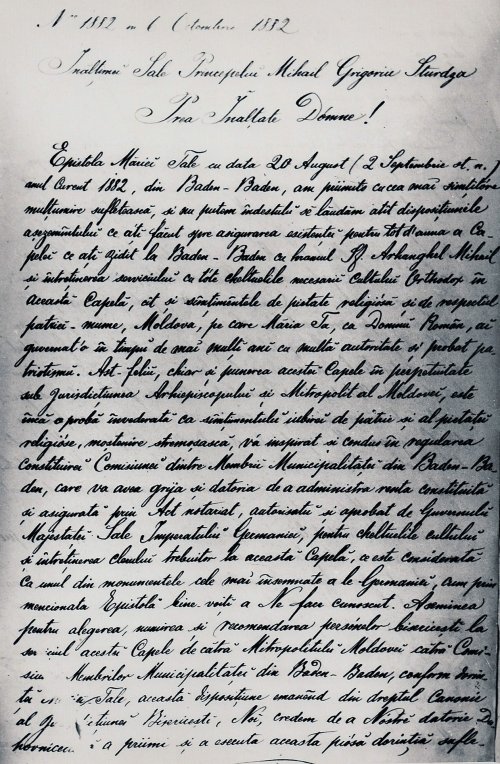 No 1882 6 Octomvrie 1882
Înălțimei Sale Principelui Mihail Grigoriu Sturdza
Prea Înălțate Dómne!
Epistola Măriei Tale cu data 20 August (2 Septembrie st. n.)
anul curent 1882, din Baden-Baden, am priimit'o cu cea mai simțitóre
mulțumire sufletéscă, și nu putem îndestul să lăudăm atit dispozițiunile
așezămîntului ce ați făcut spre asigurarea esistentă pentru tot d'auna a Ca-
pelei ce ați zidit la Baden-Baden cu hramul Sf. Arhanghel Mihail
și întreținerea serviciului cu tote cheltuelile necesarii Cultului Orthodox în
această Capelă, cît și simțimintele de pietate religiósă și de respectul
patriei-mume, Moldova, pe care Măria Ta, ca Domnu Român, ai
guvernat'o în timpu de mai mulți ani cu multă autoritate și probat pa-
triotismu. Ast-feliu, chiar și punerea acestei Capele în perpetuitate
sub jurisdicțiunea Arhiepiscopului și Mitropolit al Moldovei, este
încă o probă învederată că simțimentulu iubirei de patrie și al pietăței
religióse, moștenire strămoșască, v'a inspirat și condus în regularea
Constituirei Comisiunei dintre Membrii Municipalităței din Baden-Ba-
den, care va avea grija și datoria de a administra renta constituită
și asigurată prin Act notarial, autorisată și aprobat de Guvernulu
Majestăței Sale Imperatului Germaniei, pentru cheltuelile cultului
și întreținerea clerului trebuitor la această Capelă, ce este considerată
ca unul din monumentele cele mai însemnate a le Germaniei, cum prin
menționata Epistolă bine-voiți a Ne face cunoscut. Aseminea
pentru alegerea, numirea și recomendarea persónelor bisericești la
serviciul acestei Capele de cătră Mitropolitulu Moldovei cătră Comi-
siu Membrilor Municipalităței din Baden-Baden, conform dorin-
ței Tale, această dispozițiune emanênd din dreptul Canonic
al Bisericești, Noi, credem de a Nóstră datorie Du-
hovnicéscă a priimi și a executa aceasta piósă dorință sufle-